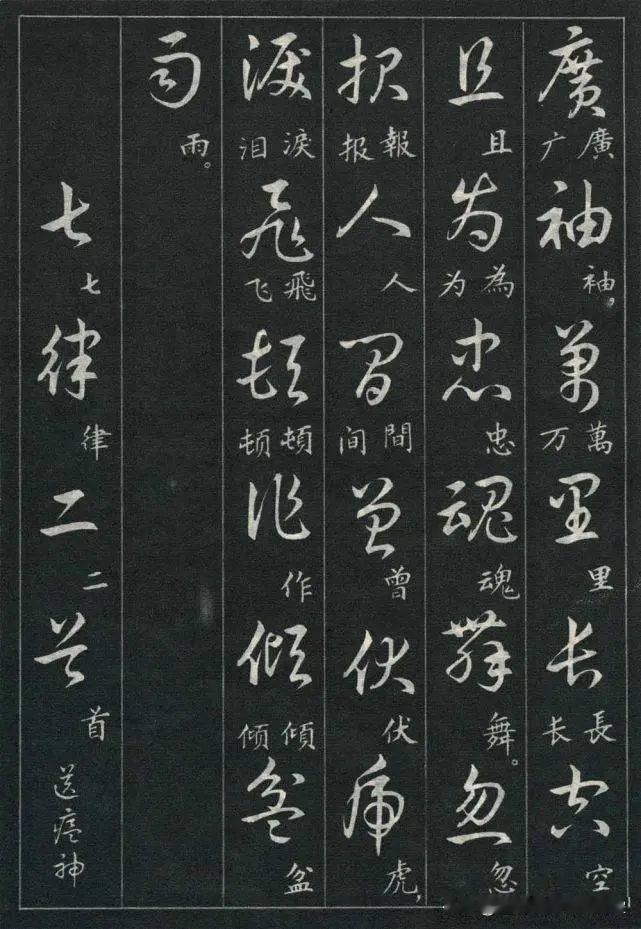 廣袖萬里长空
廣广 袖， 萬万 里 長长 空
且为忠魂舞忽
且 為为 忠 魂 舞。 忽
报人间曾伏虎
報报 人 間间 曾 伏 虎，
淚飛頓作傾盆
淚泪 飛飞 頓顿 作 傾倾 盆
雨
雨。
七律二首
七 律 二 首 送瘟神